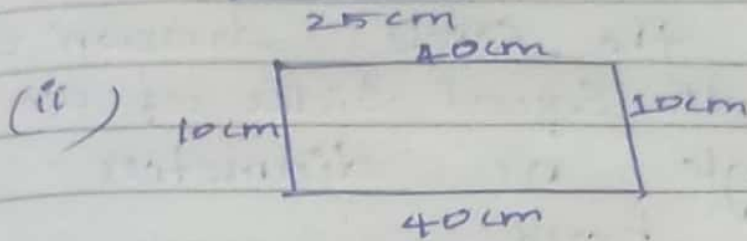 25cm
40cm
(ii)
10cm
10cm
40cm